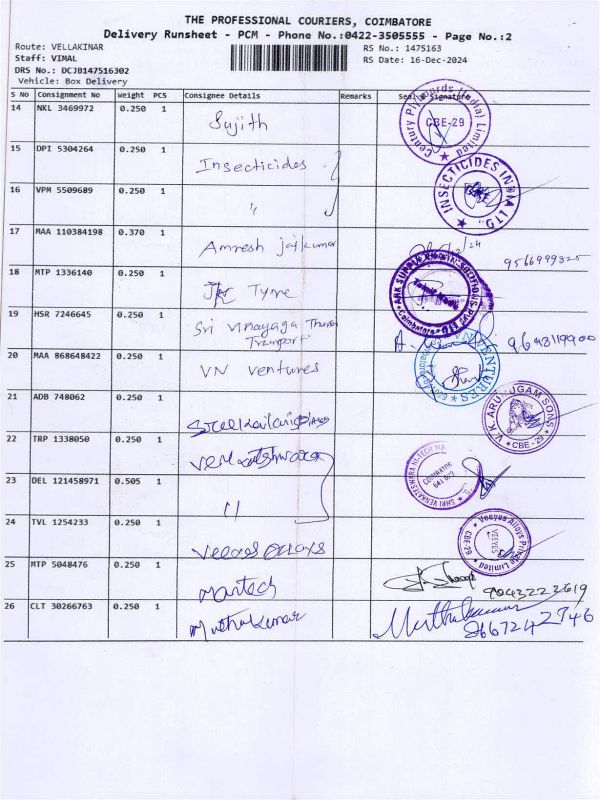 THE PROFESSIONAL COURIERS, COIMBATORE
Delivery Runsheet - PCM - Phone No.:0422-3505555 - Page No.:2
Route: VELLAKINAR
RS No.: 1475163
Staff: VIMAL
RS Date: 16-Dec-2024
DRS No.: DCJB147516302
Vehicle: Box Delivery
S No Consignment No Weight PCS Consignee Details Remarks Seal & Signature
14 NKL 3469972 0.250 1 Sujith CBE-29
15 DPI 5304264 0.250 1 Insecticides INSECTICIDES INDIA LTD.
16 VPM 5509689 0.250 1 "
17 MAA 110384198 0.370 1 Amresh jaikumar
18 MTP 1336140 0.250 1 Tyre
19 HSR 7246645 0.250 1 Sri Vinayaga
20 MAA 868648422 0.250 1 VN ventures
21 ADB 748062 0.250 1 V.K. ARUMUGAM SONS CBE-29
22 TRP 1338050 0.250 1
23 DEL 121458971 0.505 1 " COIMBATORE
24 TVL 1254233 0.250 1 Veeyes Alloys Private Limited VEEYES CBE-29
25 MTP 5048476 0.250 1 9043223619
26 CLT 30266763 0.250 1 Muthukumar Muthukumar 8667242746